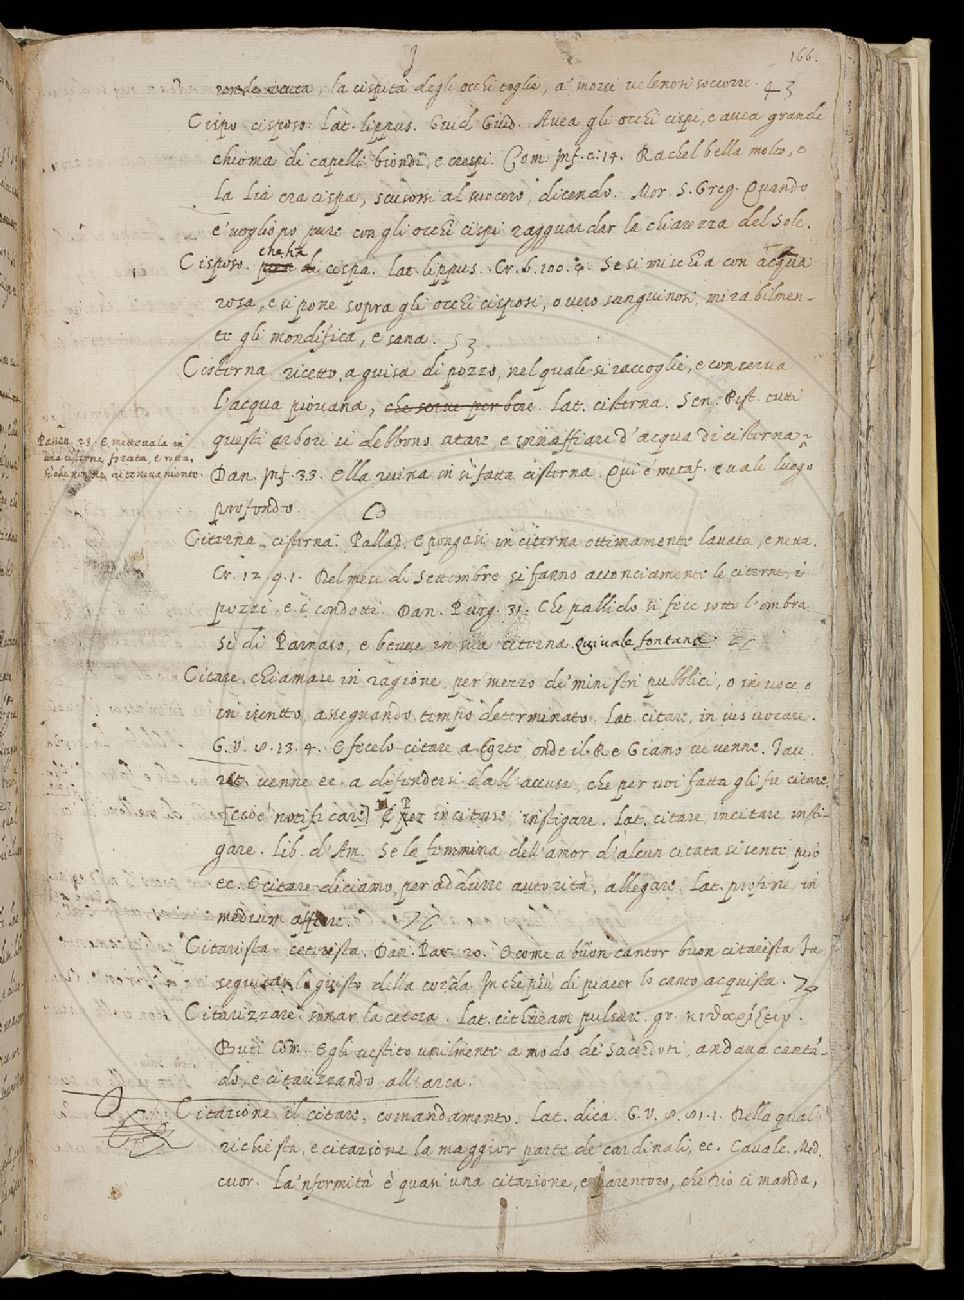 166.
la cispità degli occhi toglie, a' morsi velenosi soccorre. 43
Cispo cisposo. Lat. lippus. Guid. Giud. Avea gli occhi cispi, e avea grande
chioma di capelli biondi, e crespi. Com. Inf. c. 14. Rachel bella molto, e
la Lia era cispa, scusossi al suocero, dicendo. Mor. S. Greg. Quando
e' vogliono pure con gli occhi cispi ragguardar la chiarezza del Sole.
che ha
Cisposo. cispa. Lat. lippus. Cr. 6. 100. 4. Se si mischia con acqua
rosa, e si pone sopra gli occhi cisposi, o vero sanguinosi, mirabilmen-
te gli mondifica, e sana. 53
Cisterna ricetto, a guisa di pozzo, nel quale si raccoglie, e conserva
l'acqua piovana, che serve per bere. Lat. cisterna. Sen. Pist. tutti
questi arbori si debbono atare, e innaffiare d'acqua di cisterna.
Passav. 25. E mettevala in
una cisterna forata, e rotta,
sì che non riteneva niente.
Dan. Inf. 33. Ella ruina in sì fatta cisterna. Qui è metaf. e vale luogo
profondo.
Citerna. cisterna. Pallad. E pongasi in citerna ottimamente lavata, e netta.
Cr. 12. 9. 1. Del mese di Settembre si fanno acconciamente le citerne, i
pozzi, e i condotti. Dan. Purg. 31. Che pallido si fece sotto l'ombra
Sì di Parnaso, e bevve in sua citerna. Qui vale fontana.
Citare. chiamare in ragione per mezzo de' ministri pubblici, o in voce o
in iscritto, assegnando tempo determinato. Lat. citare, in ius vocare.
G. V. 8. 13. 4. E fecelo citare a Corte onde il Re Giamo vi venne. Tav.
rit. venne ec. a difendersi dall'accusa, che per voi fatta gli fu citare.
[cioè notificare] E per incitare, instigare. Lat. citare, incitare, insti-
gare. Lib. d'Am. Se la femmina dell'amor d'alcun citata si sente, può
ec. E citare diciamo, per addurre autorità, allegare. Lat. proferre, in
medium afferre.
Citarista. ceterista. Dan. Par. 20. E come a buon cantor buon citarista Fa
seguitar lo guizzo della corda In che più di piacer lo canto acquista.
Citarizzare. sonar la cetera. Lat. citharam pulsare. gr. κιθαρίζειν.
Buti Com. Egli vestito umilmente a modo de' Sacerdoti, andava cantã-
do, e citarizzando all'arca.
Citazione il citare, comandamento. Lat. dica. G. V. 8. 91. 1. Nella qual
richesta, e citazione la maggior parte de' cardinali, ec. Cavalc. Med.
cuor. La 'nfermità è quasi una citazione, e parentoro, che Dio ci manda,